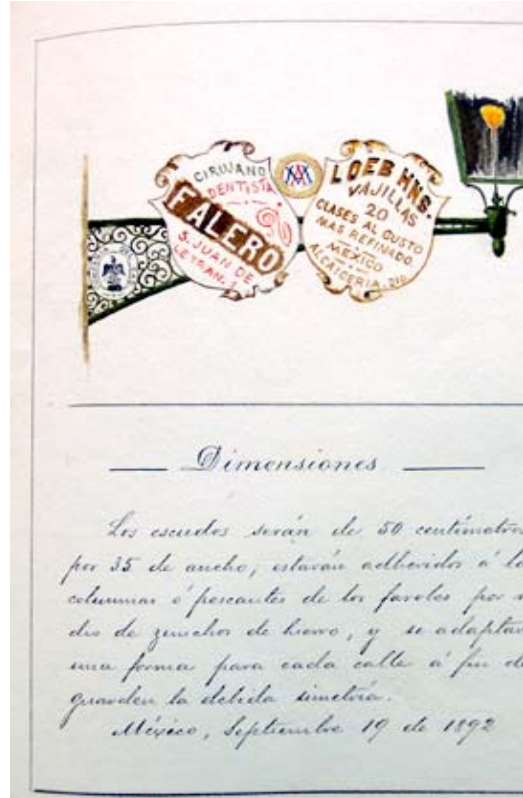 CIRUJANO
DENTISTA
FALERO
S. JUAN DE
LETRAN. 1
LOEB HNS.
VAJILLAS
20
CLASES AL GUSTO
MAS REFINADO.
MEXICO
ALCAICERIA.
Dimensiones.
Los escudos serán de 50 centimetros
por 35 de ancho; estarán adheridos á
columnas ó pescantes de los faroles por
dio de zunchos de hierro, y se adaptar
una forma para cada calle á fin d
guarden la debida simetría.
México, Septiembre 19 de 1892